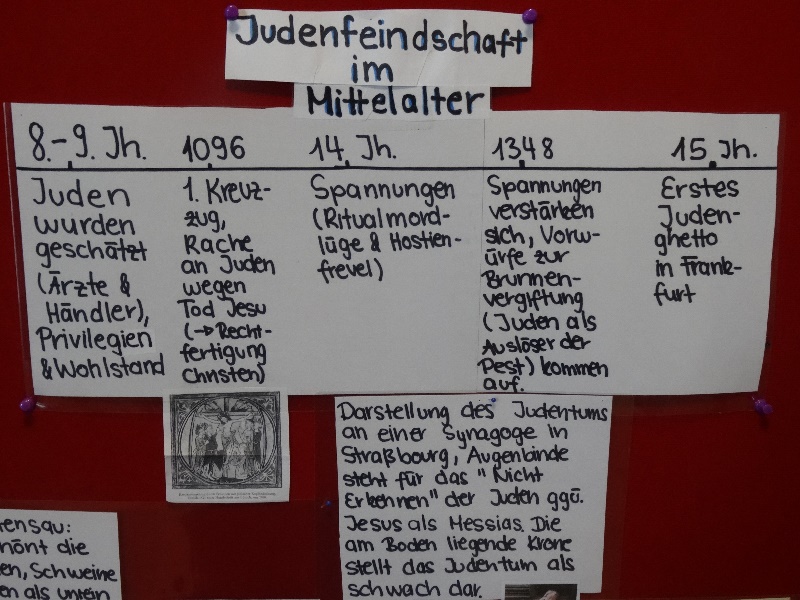 Judenfeindschaft
im
Mittelalter
8.-9. Jh.
Juden
wurden
geschätzt
(Ärzte &
Händler),
Privilegien
& Wohlstand
1096
1. Kreuz-
zug,
Rache
an Juden
wegen
Tod Jesu
(→ Recht-
fertigung
Christen)
14. Jh.
Spannungen
(Ritualmord-
lüge & Hostien-
frevel)
1348
Spannungen
verstärken
sich, Vorw-
ürfe zur
Brunnen-
vergiftung
(Juden als
Auslöser der
Pest) kommen
auf.
15. Jh.
Erstes
Juden-
ghetto
in Frank-
furt
Darstellung des Judentums
an einer Synagoge in
Straßbourg, Augenbinde
steht für das "Nicht
Erkennen" der Juden ggü.
Jesus als Messias. Die
am Boden liegende Krone
stellt das Judentum als
schwach dar.
ensau:
hönt die
en, Schweine
en als unrein